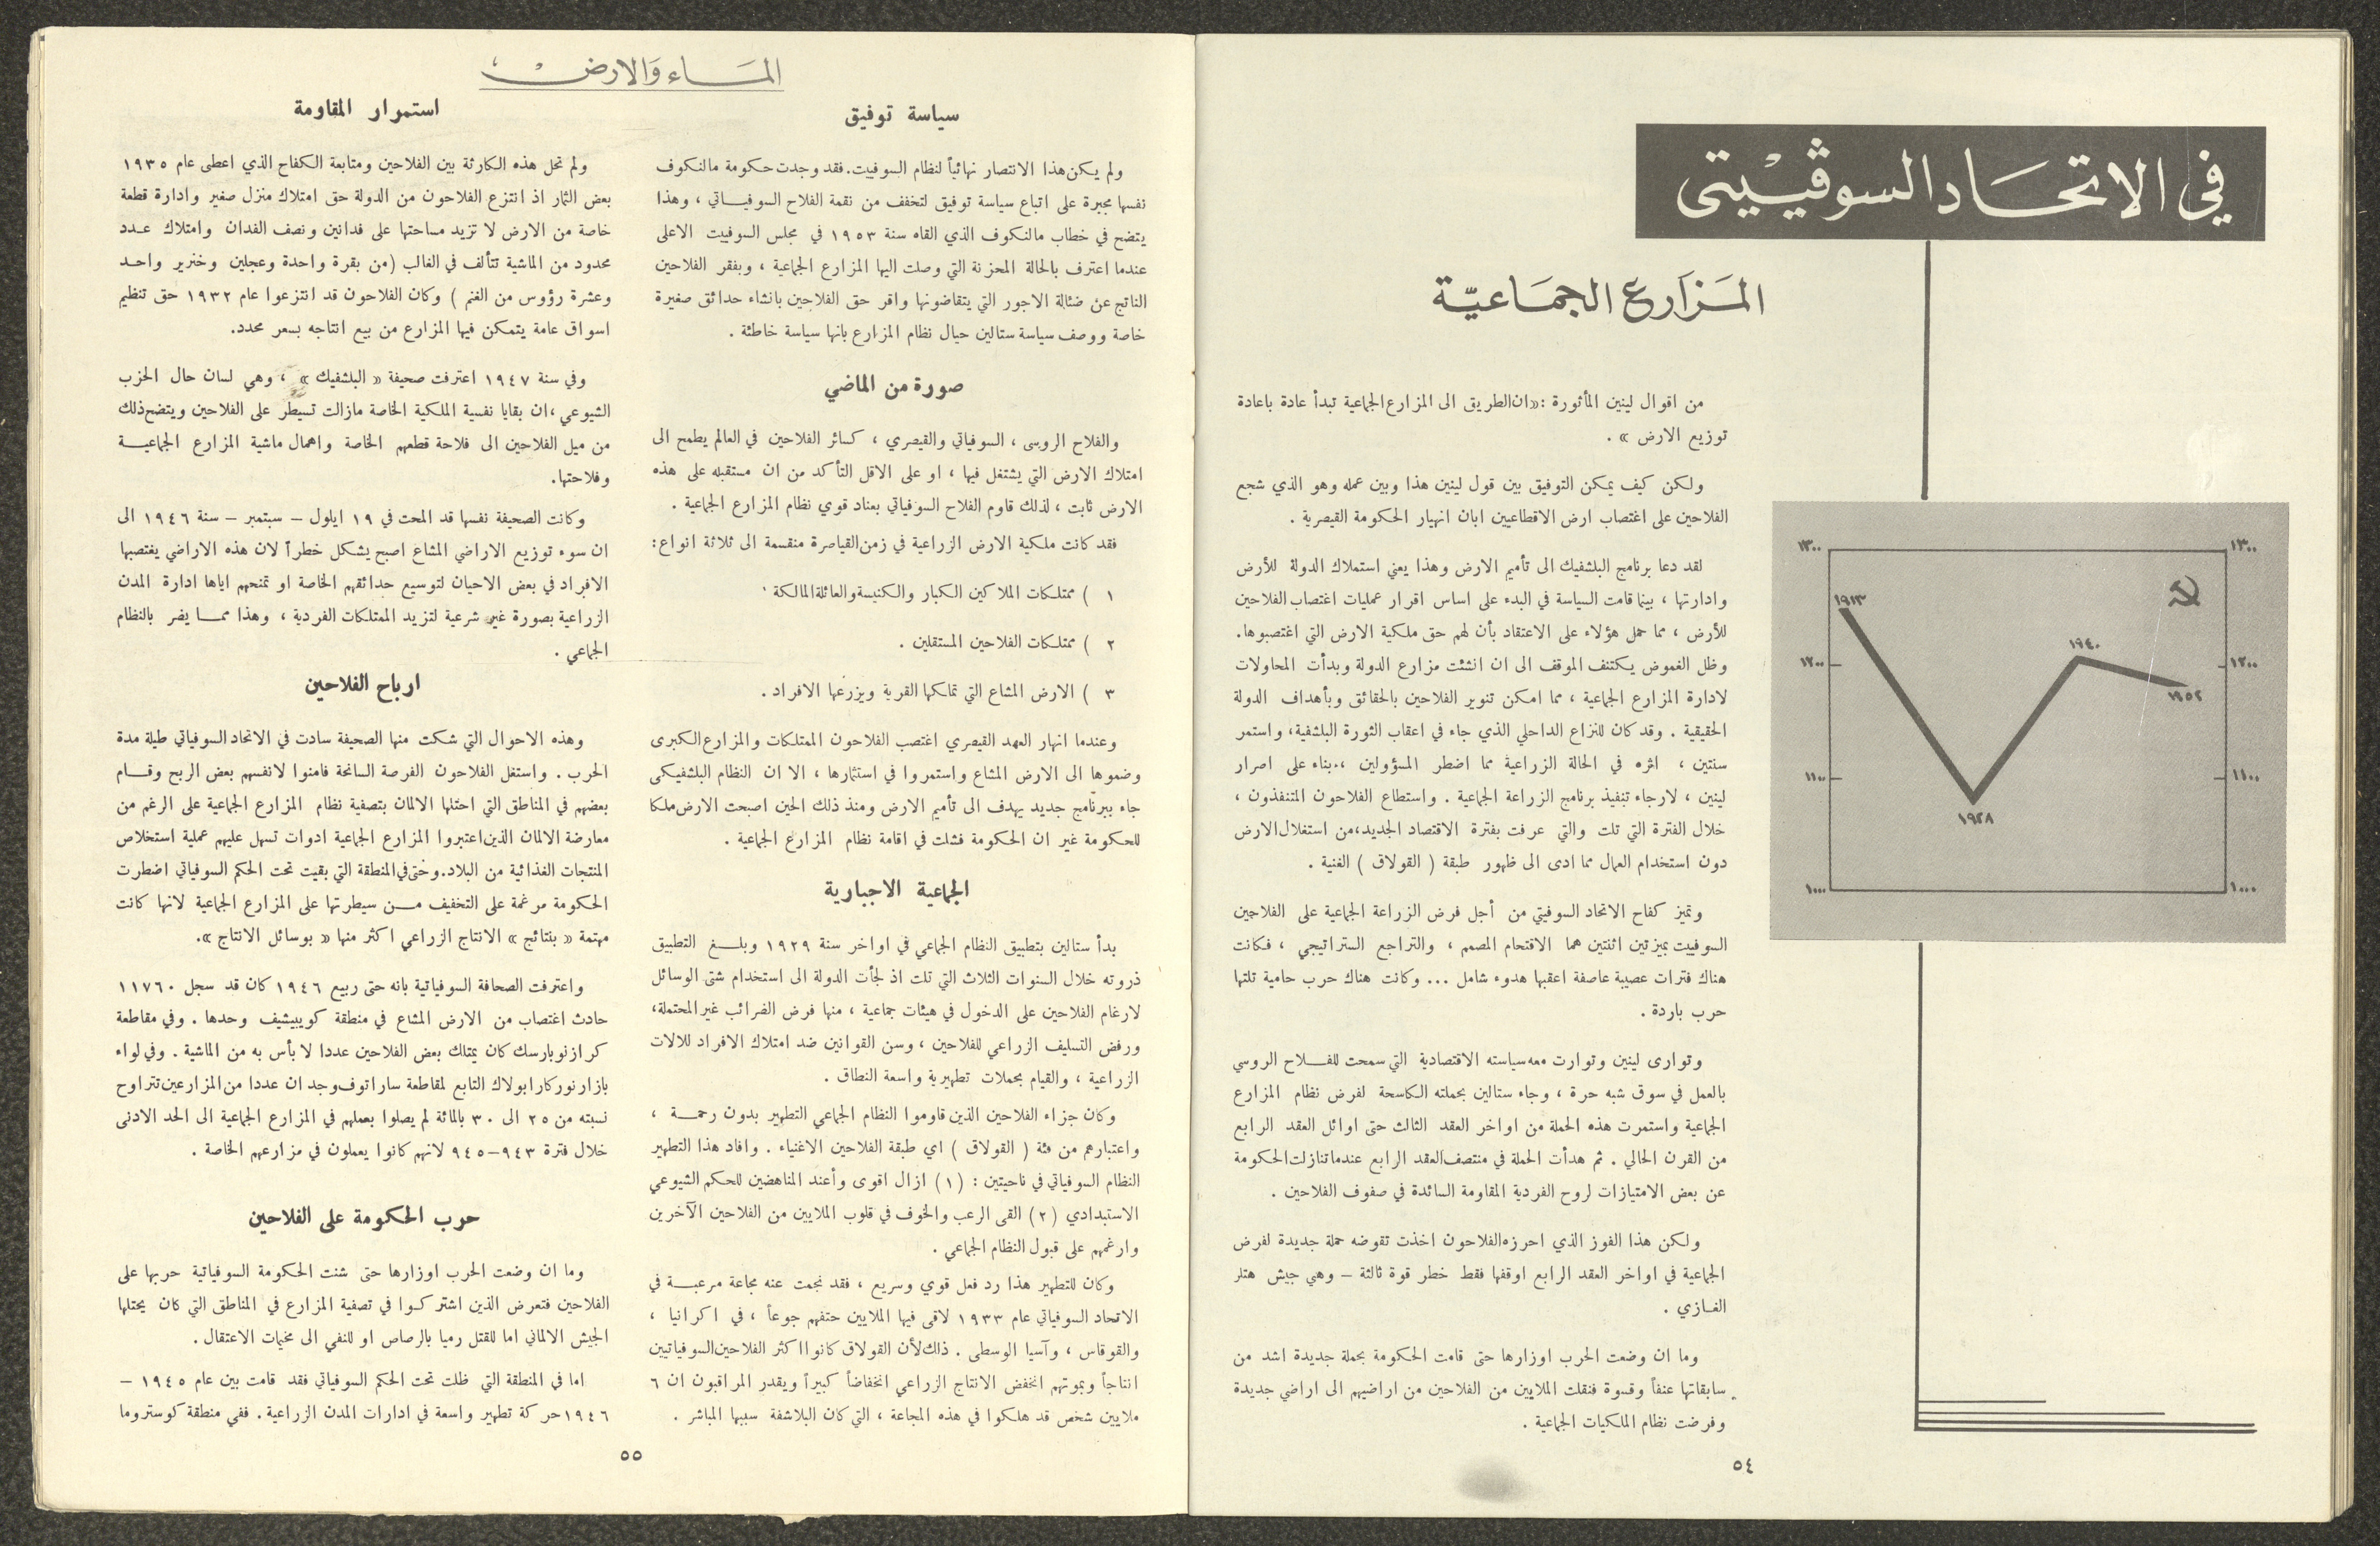 في الاتحاد السوڤييتي
المزارع الجماعية
من اقوال لينين المأثورة :«ان الطريق الى المزارع الجماعية تبدأ عادة باعادة
توزيع الارض » .
ولكن كيف يمكن التوفيق بين قول لينين هذا وبين عمله وهو الذي شجع
الفلاحين على اغتصاب ارض الاقطاعيين ابان انهيار الحكومة القيصرية .
لقد دعا برنامج البلشفيك الى تأميم الارض وهذا يعني استملاك الدولة للأرض
وادارتها ، بينما قامت السياسة في البدء على اساس اقرار عمليات اغتصاب الفلاحين
للأرض ، مما حمل هؤلاء على الاعتقاد بأن لهم حق ملكية الارض التي اغتصبوها.
وظل الغموض يكتنف الموقف الى ان انشئت مزارع الدولة وبدأت المحاولات
لادارة المزارع الجماعية ، مما امكن تنوير الفلاحين بالحقائق وبأهداف الدولة
الحقيقية . وقد كان للنزاع الداخلي الذي جاء في اعقاب الثورة البلشفية، واستمر
سنتين ، اثره في الحالة الزراعية مما اضطر المسؤولين ،.بناء على اصرار
لينين ، لارجاء تنفيذ برنامج الزراعة الجماعية . واستطاع الفلاحون المتنفذون ،
خلال الفترة التي تلت والتي عرفت بفترة الاقتصاد الجديد،من استغلال الارض
دون استخدام العمال مما ادى الى ظهور طبقة ( القولاق ) الغنية .
وتميز كفاح الاتحاد السوفيتي من أجل فرض الزراعة الجماعية على الفلاحين
السوفييت بميزتين اثنتين هما الاقتحام المصمم ، والتراجع الستراتيجي ، فكانت
هناك فترات عصيبة عاصفة اعقبها هدوء شامل ... وكانت هناك حرب حامية تلتها
حرب باردة .
وتوارى لينين وتوارت معه سياسته الاقتصادية التي سمحت للفـلاح الروسي
بالعمل في سوق شبه حرة ، وجاء ستالين بحملته الكاسحة لفرض نظام المزارع
الجماعية واستمرت هذه الحملة من اواخر العقد الثالث حتى اوائل العقد الرابع
من القرن الحالي . ثم هدأت الحملة في منتصف العقد الرابع عندما تنازلت الحكومة
عن بعض الامتيازات لروح الفردية المقاومة السائدة في صفوف الفلاحين .
ولكن هذا الفوز الذي احرزه الفلاحون اخذت تقوضه حملة جديدة لفرض
الجماعية في اواخر العقد الرابع اوقفها فقط خطر قوة ثالثة – وهي جيش هتلر
الغـازي .
وما ان وضعت الحرب اوزارها حتى قامت الحكومة بحملة جديدة اشد من
سابقاتها عنفاً وقسوة فنقلت الملايين من الفلاحين من اراضيهم الى اراضي جديدة
وفرضت نظام الملكيات الجماعية .
١٣٠٠
١٣٠٠
١٩١٣
١٩٤٠
١٢٠٠
١٢٠٠
١٩٥٢
١١٠٠
١١٠٠
١٩٢٨
١٠٠٠
١٠٠٠
٥٤
المـاء والارض
سياسة توفيق
ولم يكن هذا الانتصار نهائياً لنظام السوفييت.فقد وجدت حكومة مالنكوف
نفسها مجبرة على اتباع سياسة توفيق لتخفف من نقمة الفلاح السوفيـاتي ، وهذا
يتضح في خطاب مالنكوف الذي القاه سنة ١٩٥٣ في مجلس السوفييت الاعلى
عندما اعترف بالحالة المحزنة التي وصلت اليها المزارع الجماعية ، وبفقر الفلاحين
الناتج عن ضئالة الاجور التي يتقاضونها واقر حق الفلاحين بانشاء حدائق صغيرة
خاصة ووصف سياسة ستالين حيال نظام المزارع بانها سياسة خاطئة .
صورة من الماضي
والفلاح الروسي ، السوفياتي والقيصري ، كسائر الفلاحين في العالم يطمح الى
امتلاك الارض التي يشتغل فيها ، او على الاقل التأكد من ان مستقبله على هذه
الارض ثابت ، لذلك قاوم الفلاح السوفياتي بعناد قوي نظام المزارع الجماعية .
فقد كانت ملكية الارض الزراعية في زمن القياصرة منقسمة الى ثلاثة انواع:
١ ) ممتلكات الملاكين الكبار والكنيسة والعائلة المالكة .
٢ ) ممتلكات الفلاحين المستقلين .
٣ ) الارض المشاع التي تملكها القرية ويزرعها الافراد .
وعندما انهار العهد القيصري اغتصب الفلاحون الممتلكات والمزارع الكبرى
وضموها الى الارض المشاع واستمروا في استثمارها ، الا ان النظام البلشفيكي
جاء ببرنامج جديد يهدف الى تأميم الارض ومنذ ذلك الحين اصبحت الارض ملكا
للحكومة غير ان الحكومة فشلت في اقامة نظام المزارع الجماعية .
الجماعية الاجبارية
بدأ ستالين بتطبيق النظام الجماعي في اواخر سنة ١٩٢٩ وبلـغ التطبيق
ذروته خلال السنوات الثلاث التي تلت اذ لجأت الدولة الى استخدام شتى الوسائل
لارغام الفلاحين على الدخول في هيئات جماعية ، منها فرض الضرائب غير المحتملة،
ورفض التسليف الزراعي للفلاحين ، وسن القوانين ضد امتلاك الافراد للالات
الزراعية ، والقيام بحملات تطهيرية واسعة النطاق .
وكان جزاء الفلاحين الذين قاوموا النظام الجماعي التطهير بدون رحمـة ،
واعتبارهم من فئة ( القولاق ) اي طبقة الفلاحين الاغنياء . وافاد هذا التطهير
النظام السوفياتي في ناحيتين : (١) ازال اقوى وأعند المناهضين للحكم الشيوعي
الاستبدادي (٢) القى الرعب والخوف في قلوب الملايين من الفلاحين الآخرين
وارغمهم على قبول النظام الجماعي .
وكان للتطهير هذا رد فعل قوي وسريع ، فقد نجمت عنه مجاعة مرعبـة في
الاتحاد السوفياتي عام ١٩٣٣ لاقى فيها الملايين حتفهم جوعاً ، في اكرانيا ،
والقوقاس ، وآسيا الوسطى . ذلك لأن القولاق كانوا اكثر الفلاحين السوفياتيين
انتاجاً وبموتهم انخفض الانتاج الزراعي انخفاضاً كبيراً ويقدر المراقبون ان ٦
ملايين شخص قد هلكوا في هذه المجاعة ، التي كان البلاشفة سببها المباشر .
استمرار المقاومة
ولم تحل هذه الكارثة بين الفلاحين ومتابعة الكفاح الذي اعطى عام ١٩٣٥
بعض الثمار اذ انتزع الفلاحون من الدولة حق امتلاك منزل صغير وادارة قطعة
خاصة من الارض لا تزيد مساحتها على فدانين ونصف الفدان وامتلاك عـدد
محدود من الماشية تتألف في الغالب (من بقرة واحدة وعجلين وخنزير واحـد
وعشرة رؤوس من الغنم ) وكان الفلاحون قد انتزعوا عام ١٩٣٢ حق تنظيم
اسواق عامة يتمكن فيها المزارع من بيع انتاجه بسعر محدد.
وفي سنة ١٩٤٧ اعترفت صحيفة « البلشفيك » ، وهي لسان حال الحزب
الشيوعي ،ان بقايا نفسية الملكية الخاصة مازالت تسيطر على الفلاحين ويتضح ذلك
من ميل الفلاحين الى فلاحة قطعهم الخاصة واهمال ماشية المزارع الجماعيـة
وفلاحتها.
وكانت الصحيفة نفسها قد المحت في ١٩ ايلول – سبتمبر – سنة ١٩٤٦ الى
ان سوء توزيع الاراضي المشاع اصبح يشكل خطراً لان هذه الاراضي يغتصبها
الافراد في بعض الاحيان لتوسيع حدائقهم الخاصة او تمنحهم اياها ادارة المدن
الزراعية بصورة غير شرعية لتزيد الممتلكات الفردية ، وهذا ممـا يضر بالنظام
الجماعي .
ارباح الفلاحين
وهذه الاحوال التي شكت منها الصحيفة سادت في الاتحاد السوفياتي طيلة مدة
الحرب . واستغل الفلاحون الفرصة السانحة فامنوا لانفسهم بعض الربح وقـام
بعضهم في المناطق التي احتلها الالمان بتصفية نظام المزارع الجماعية على الرغم من
معارضة الالمان الذين اعتبروا المزارع الجماعية ادوات تسهل عليهم عملية استخلاص
المنتجات الغذائية من البلاد.وحتى في المنطقة التي بقيت تحت الحكم السوفياتي اضطرت
الحكومة مرغمة على التخفيف مـن سيطرتها على المزارع الجماعية لانها كانت
مهتمة « بنتائج » الانتاج الزراعي اكثر منها « بوسائل الانتاج ».
واعترفت الصحافة السوفياتية بانه حتى ربيع ١٩٤٦ كان قد سجل ١١٧٦٠
حادث اغتصاب من الارض المشاع في منطقة كويبيشيف وحدها . وفي مقاطعة
كرازنويارسك كان يمتلك بعض الفلاحين عددا لا بأس به من الماشية . وفي لواء
بازارنوركارابولاك التابع لمقاطعة ساراتوف وجد ان عددا من المزارعين تتراوح
نسبته من ٢٥ الى ٣٠ بالمائة لم يصلوا بعملهم في المزارع الجماعية الى الحد الادنى
خلال فترة ٩٤٣–٩٤٥ لانهم كانوا يعملون في مزارعهم الخاصة .
حرب الحكومة على الفلاحين
وما ان وضعت الحرب اوزارها حتى شنت الحكومة السوفياتية حربها على
الفلاحين فتعرض الذين اشتركوا في تصفية المزارع في المناطق التي كان يحتلها
الجيش الالماني اما للقتل رميا بالرصاص او للنفي الى مخيمات الاعتقال .
اما في المنطقة التي ظلت تحت الحكم السوفياتي فقد قامت بين عام ١٩٤٥ –
١٩٤٦ حركة تطهير واسعة في ادارات المدن الزراعية. ففي منطقة كوستروما
٥٥